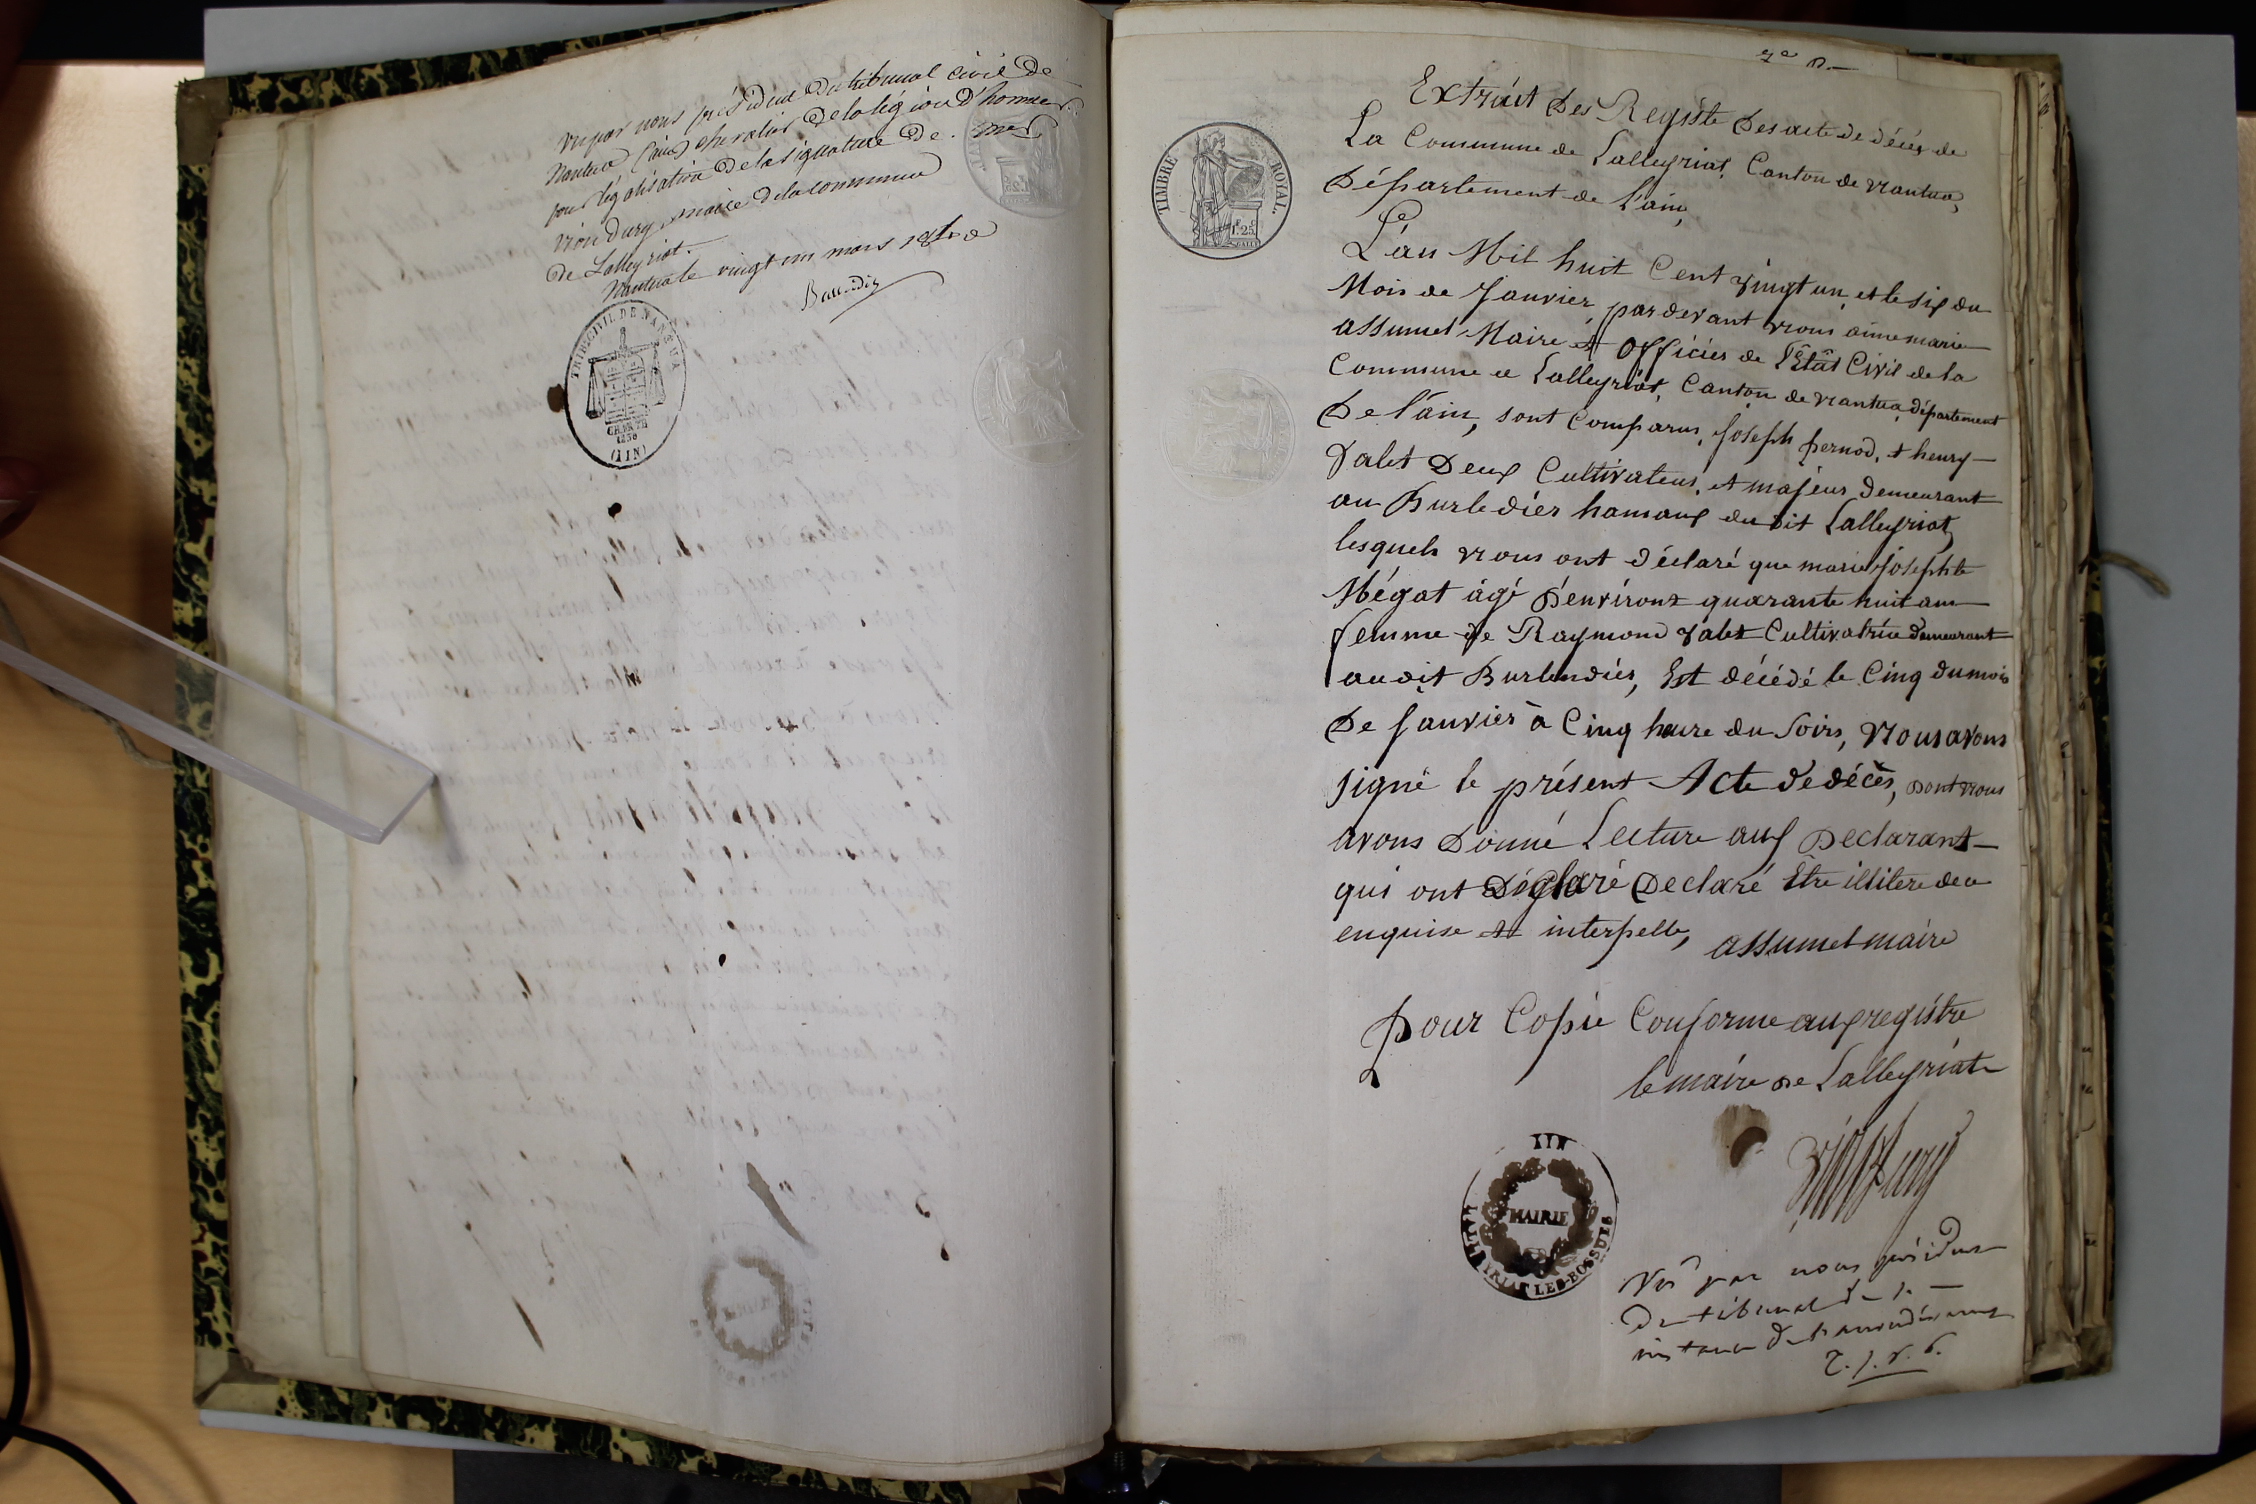 Vu par nous président du tribunal civil de
Nantua (ain) chevalier de la légion d'honneur
pour légalisation de la signature de
maire de la commune
de Lalleyriat.
Nantua le vingt un mars
TRIB. CIVIL DE NANTUA
(AIN)
Extrait Des Registe Des acte de décès de
La Commune de Lalleyriat, Canton de Nantua,
Département de l'ain,
TIMBRE ROYAL.
1f.25
L'an Mil huit Cent vingt un, et le six du
Mois de Janvier, pardevant nous aimé marie
assumel Maire et Officier de l'État Civil de la
Commune de Lalleyriat, Canton de Nantua, département
De l'ain, sont Comparus, Joseph pernod, et henry
Valet Deux Cultivateurs, et majeur Demeurant
au Burlediér hamaux du dit Lalleyriat,
lesquels nous ont déclaré que marie josephte
Mégat âgé D'environt quarante huit ans
femme de Raymond Valet Cultivatrice demeurant
au dit Burlendiér, Est décédé le Cinq du mois
De Janvier à Cinq heure du Soirs, Nous avons
signé le présent Acte de décès, Dont nous
avons Donné Lecture aux Declarant
qui ont Déclaré Declaré Être illitere de ce
enquise et interpelle, assumel maire
pour Copie Conforme aux registre
le maire De Lalleyriat
AIN
MAIRIE
LALLEYRIAT LES-BOSSUES
Vu par nous président
du tribunal de 1e
instance